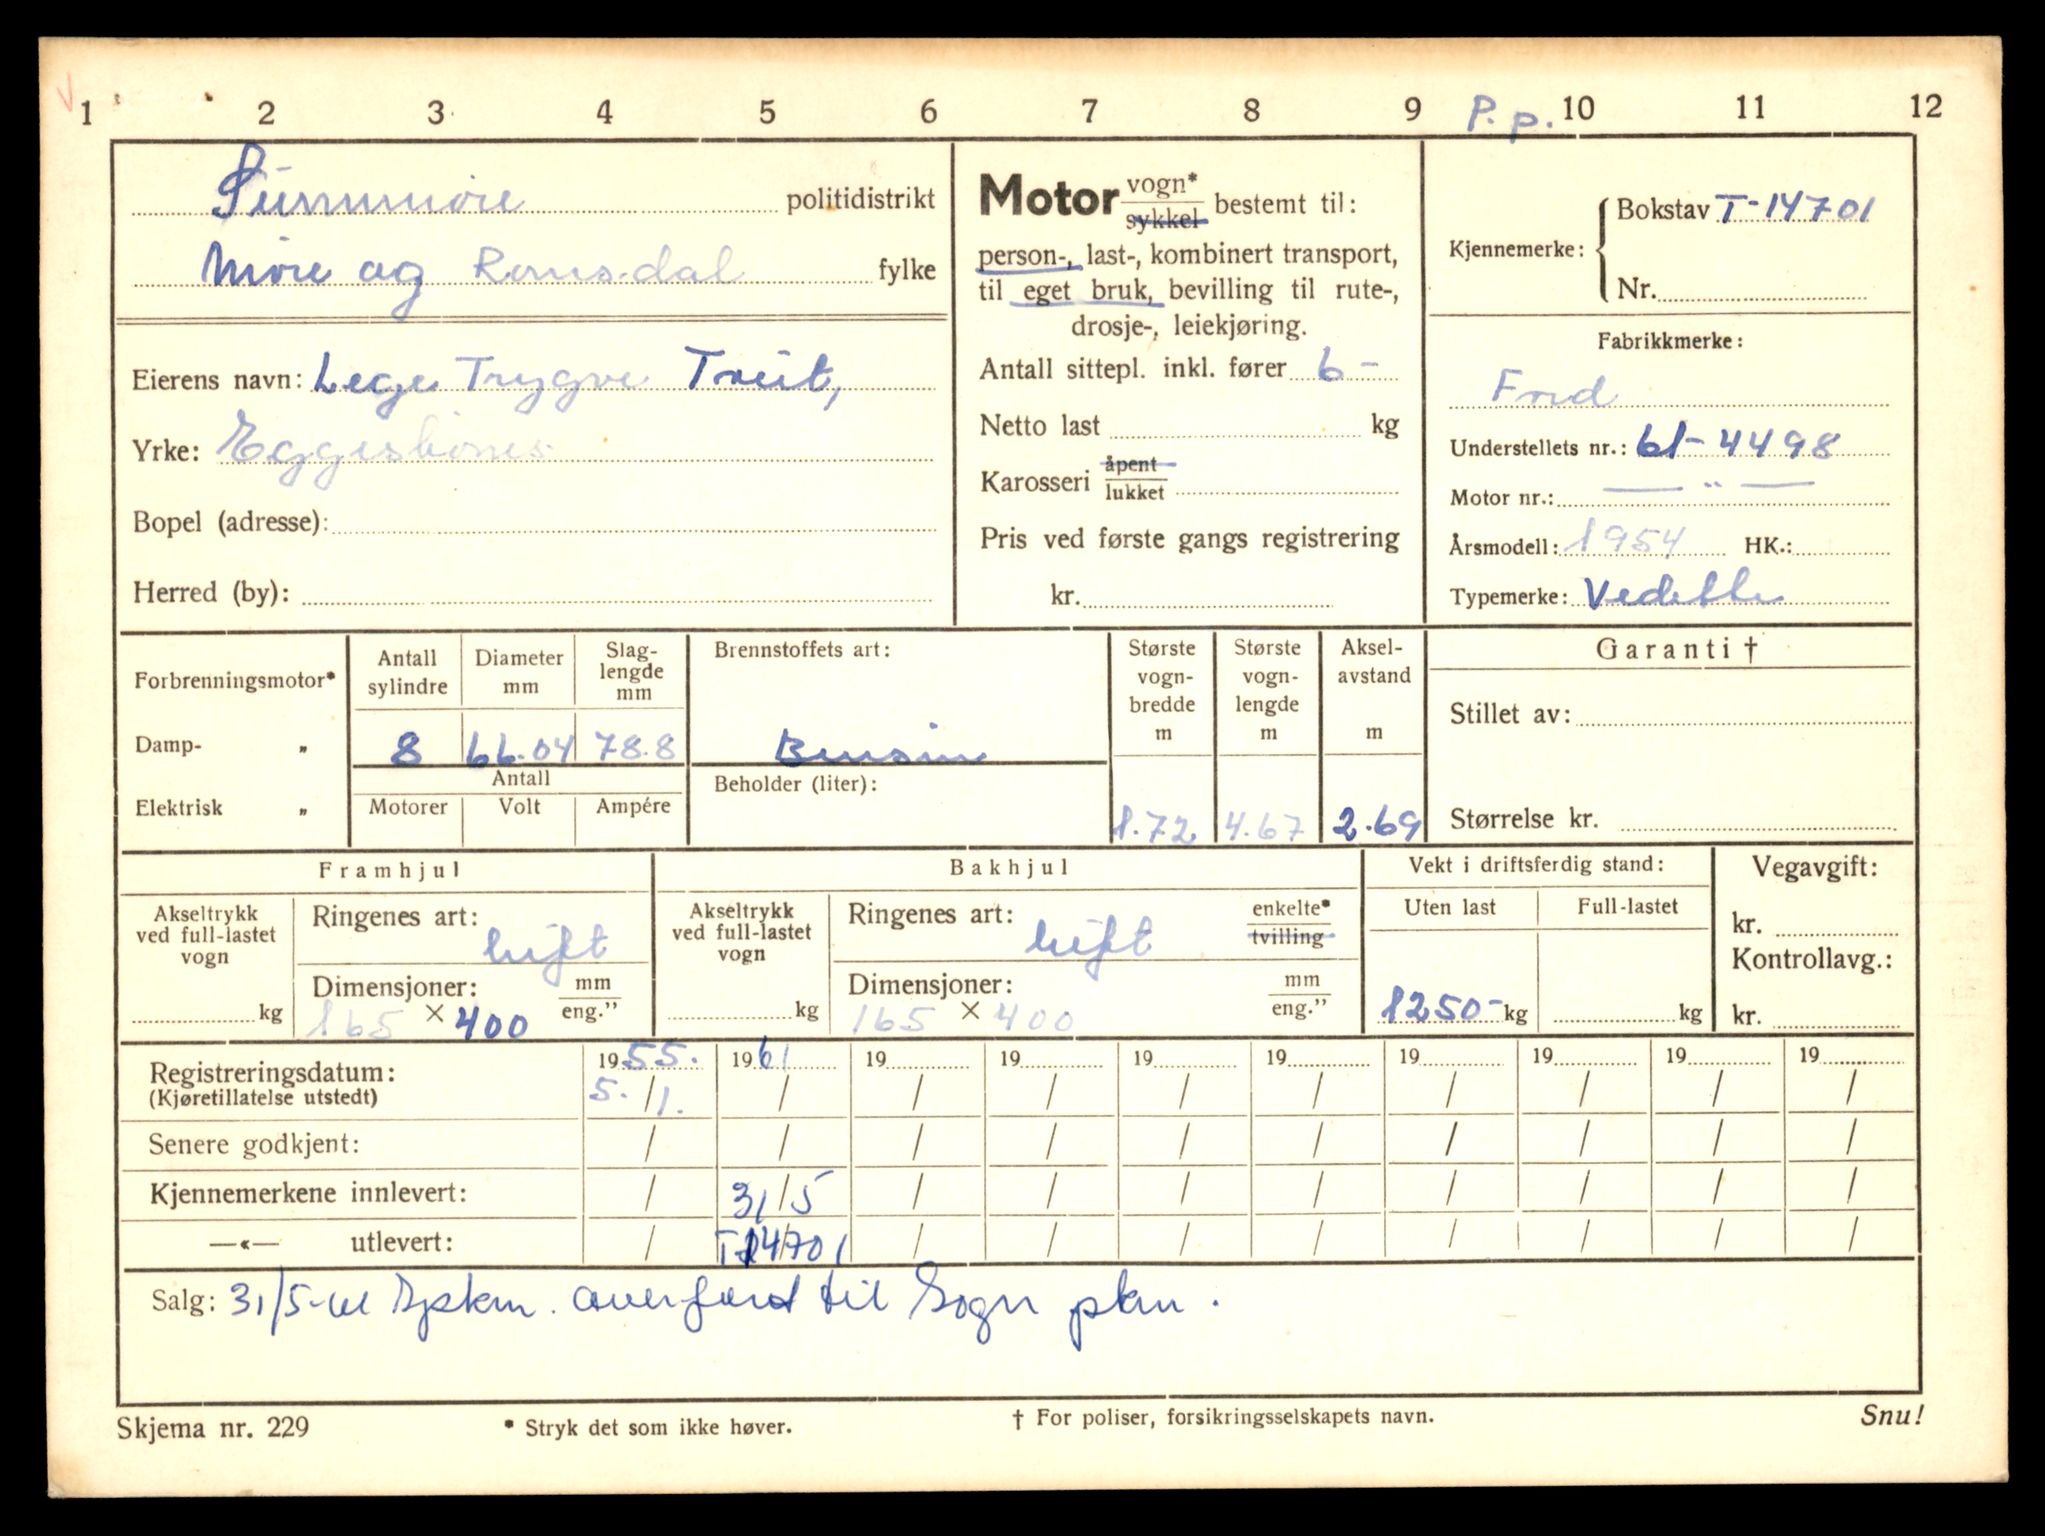 1 2 3 4 5 6 7 8 9 P.p. 10 11 12
Sunnmøre politidistrikt
Møre og Romsdal fylke
Eierens navn: Lege Trygve Treit,
Yrke: Eggesbønes
Bopel (adresse):
Herred (by):
Motor vogn* sykkel bestemt til:
person-, last-, kombinert transport,
til eget bruk, bevilling til rute-,
drosje-, leiekjøring.
Antall sittepl. inkl. fører 6-
Netto last kg
Karosseri åpent lukket
Pris ved første gangs registrering
kr.
Kjennemerke: Bokstav T-14701
Nr.
Fabrikkmerke:
Ford
Understellets nr.: 61-4498
Motor nr.: — " —
Årsmodell: 1954 HK.:
Typemerke: Vedette
Forbrenningsmotor*
Damp- "
Elektrisk "
Antall sylindre
Diameter mm
Slag-
lengde
mm
8 66.04 78.8
Antall
Motorer Volt Ampére
Brennstoffets art:
Bensin
Beholder (liter):
Største
vogn-
bredde
m
1.72
Største
vogn-
lengde
m
4.67
Aksel-
avstand
m
2.69
Garanti †
Stillet av:
Størrelse kr.
Framhjul
Akseltrykk
ved full-lastet
vogn
kg
Ringenes art:
luft
Dimensjoner: mm
165 × 400 eng."
Bakhjul
Akseltrykk
ved full-lastet
vogn
kg
Ringenes art: enkelte*
luft tvilling
Dimensjoner: mm
165 × 400 eng."
Vekt i driftsferdig stand:
Uten last Full-lastet
1250- kg kg
Vegavgift:
kr.
Kontrollavg.:
kr.
Registreringsdatum: 1955. 1961 19 19 19 19 19 19 19 19
(Kjøretillatelse utstedt) 5. / 1. / / / / / / / / /
Senere godkjent: / / / / / / / / / /
Kjennemerkene innlevert: / 31/5 / / / / / / / /
—«— utlevert: / T-14701 / / / / / / / /
Salg: 31/5-61 overført til Sogn pkm.
Skjema nr. 229 * Stryk det som ikke høver. † For poliser, forsikringsselskapets navn. Snu!